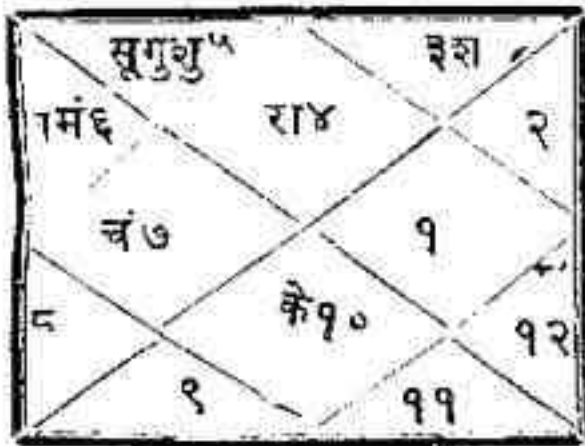 सूगुशु५
३श
मं६
रा४
२
चं७
१
के१०
८
१२
९
११